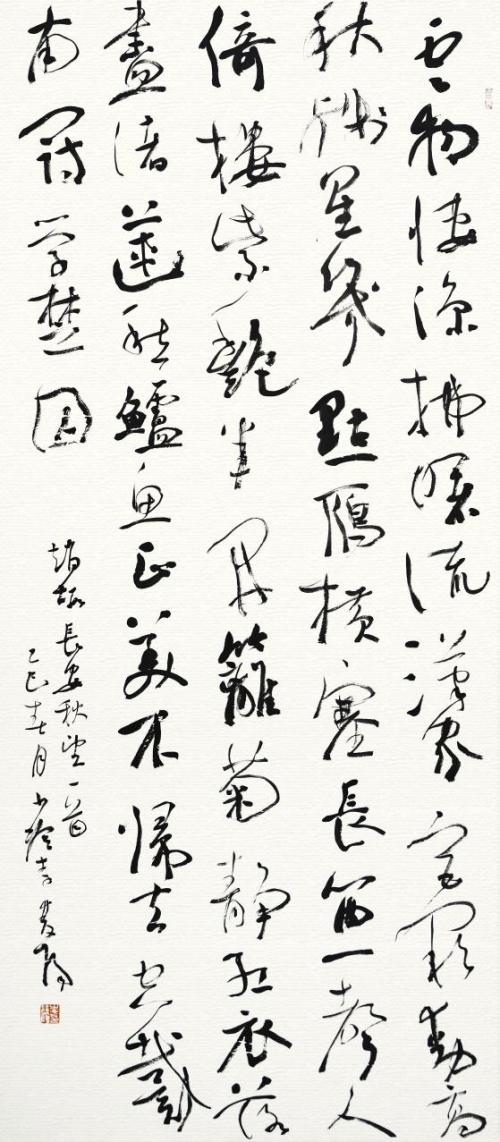 云物悽涼拂曙流漢家宮闕動高
秋殘星幾點雁橫塞長笛一聲人
倚樓紫艷半開籬菊靜紅衣落
盡渚蓮愁鱸魚正美不歸去空戴
南冠学楚囚
趙嘏長安秋望一首
乙巳春月